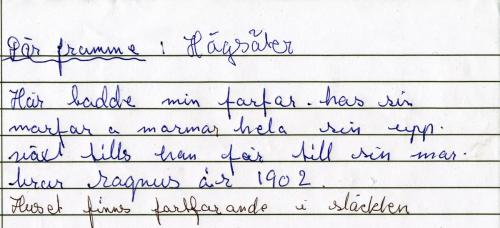 Där framme : Hägsäter
Här badde min farfar. hos sin
morfar o mormor hela sin upp.
växt tills han får till sin mor.
bror Ragnus år 1902.
Huset finns fortfarande i släckten